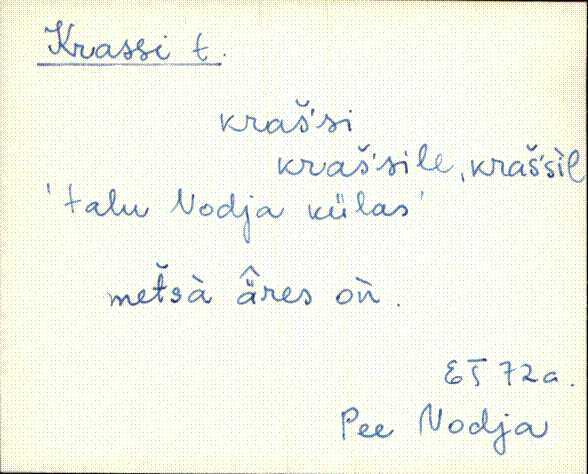 Krassi t.
kraš́si
kraš́sile, kraš́sìl
'talu Nodja külas'
met̆sà äres òn.
EĪ 72a.
Pee Nodja